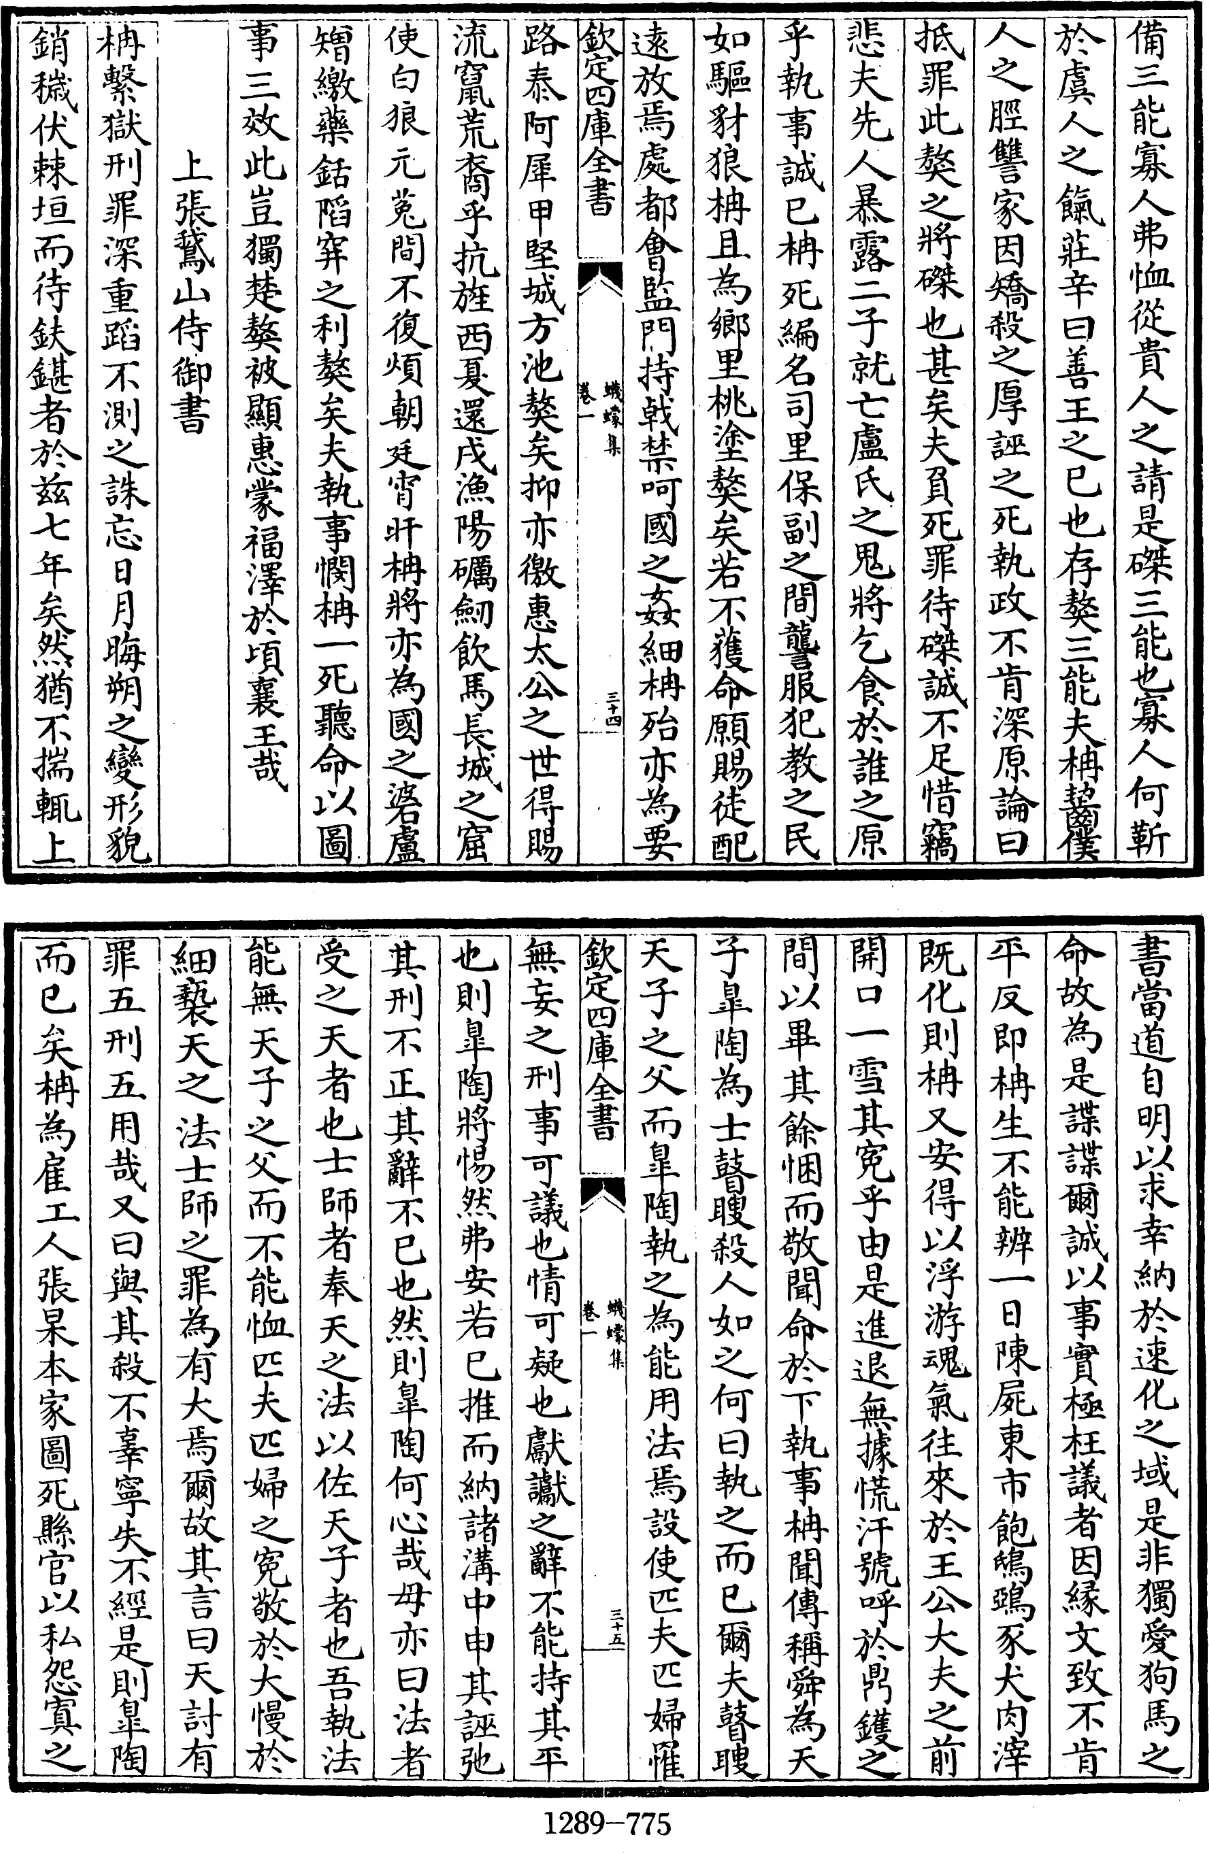 備三能寡人弗恤從貴人之請是磔三能也寡人何靳
於虞人之餼莊辛曰善王之已也存獒三能夫柟齧僕
人之脛讐家因矯殺之厚誣之死執政不肯深原論曰
抵罪此獒之將磔也甚矣夫負死罪待磔誠不足惜竊
悲夫先人暴露二子就亡盧氏之鬼將乞食於誰之原
乎執事誠已柟死編名司里保副之間讋服犯教之民
如驅豺狼柟且為鄉里桃塗獒矣若不獲命願賜徒配
遠放焉處都會監門持戟禁呵國之姦細柟殆亦為要
欽定四庫全書
蠛蠓集
卷一
三十四
路泰阿犀甲堅城方池獒矣抑亦徼惠太公之世得賜
流竄荒裔乎抗旌西夏還戍漁陽礪劒飲馬長城之窟
使白狼元菟間不復煩朝廷宵旰柟將亦為國之碆盧
矰繳藥銛䧟穽之利獒矣夫執事憫柟一死聽命以圖
事三效此豈獨楚獒被顯惠蒙福澤於頃襄王哉
上張鵞山侍御書
柟繫獄刑罪深重蹈不測之誅忘日月晦朔之變形貌
銷穢伏棘垣而待鈇鑕者於兹七年矣然猶不揣輒上
書當道自明以求幸納於速化之域是非獨愛狗馬之
命故為是諜諜爾誠以事實極枉議者因緣文致不肯
平反即柟生不能辨一日陳屍東市飽鴟鴞豕犬肉滓
既化則柟又安得以浮游魂氣往來於王公大夫之前
開口一雪其寃乎由是進退無據慌汗號呼於鼎鑊之
間以畢其餘悃而敬聞命於下執事柟聞傳稱舜為天
子臯陶為士瞽瞍殺人如之何曰執之而已爾夫瞽瞍
天子之父而臯陶執之為能用法焉設使匹夫匹婦罹
欽定四庫全書
蠛蠓集
卷一
三十五
無妄之刑事可議也情可疑也獻讞之辭不能持其平
也則臯陶將惕然弗安若已推而納諸溝中申其誣弛
其刑不正其辭不已也然則臯陶何心哉毋亦曰法者
受之天者也士師者奉天之法以佐天子者也吾執法
能無天子之父而不能恤匹夫匹婦之寃敬於大慢於
細褻天之法士師之罪為有大焉爾故其言曰天討有
罪五刑五用哉又曰與其殺不辜寧失不經是則臯陶
而已矣柟為雇工人張杲本家圖死縣官以私怨寘之
1289-775